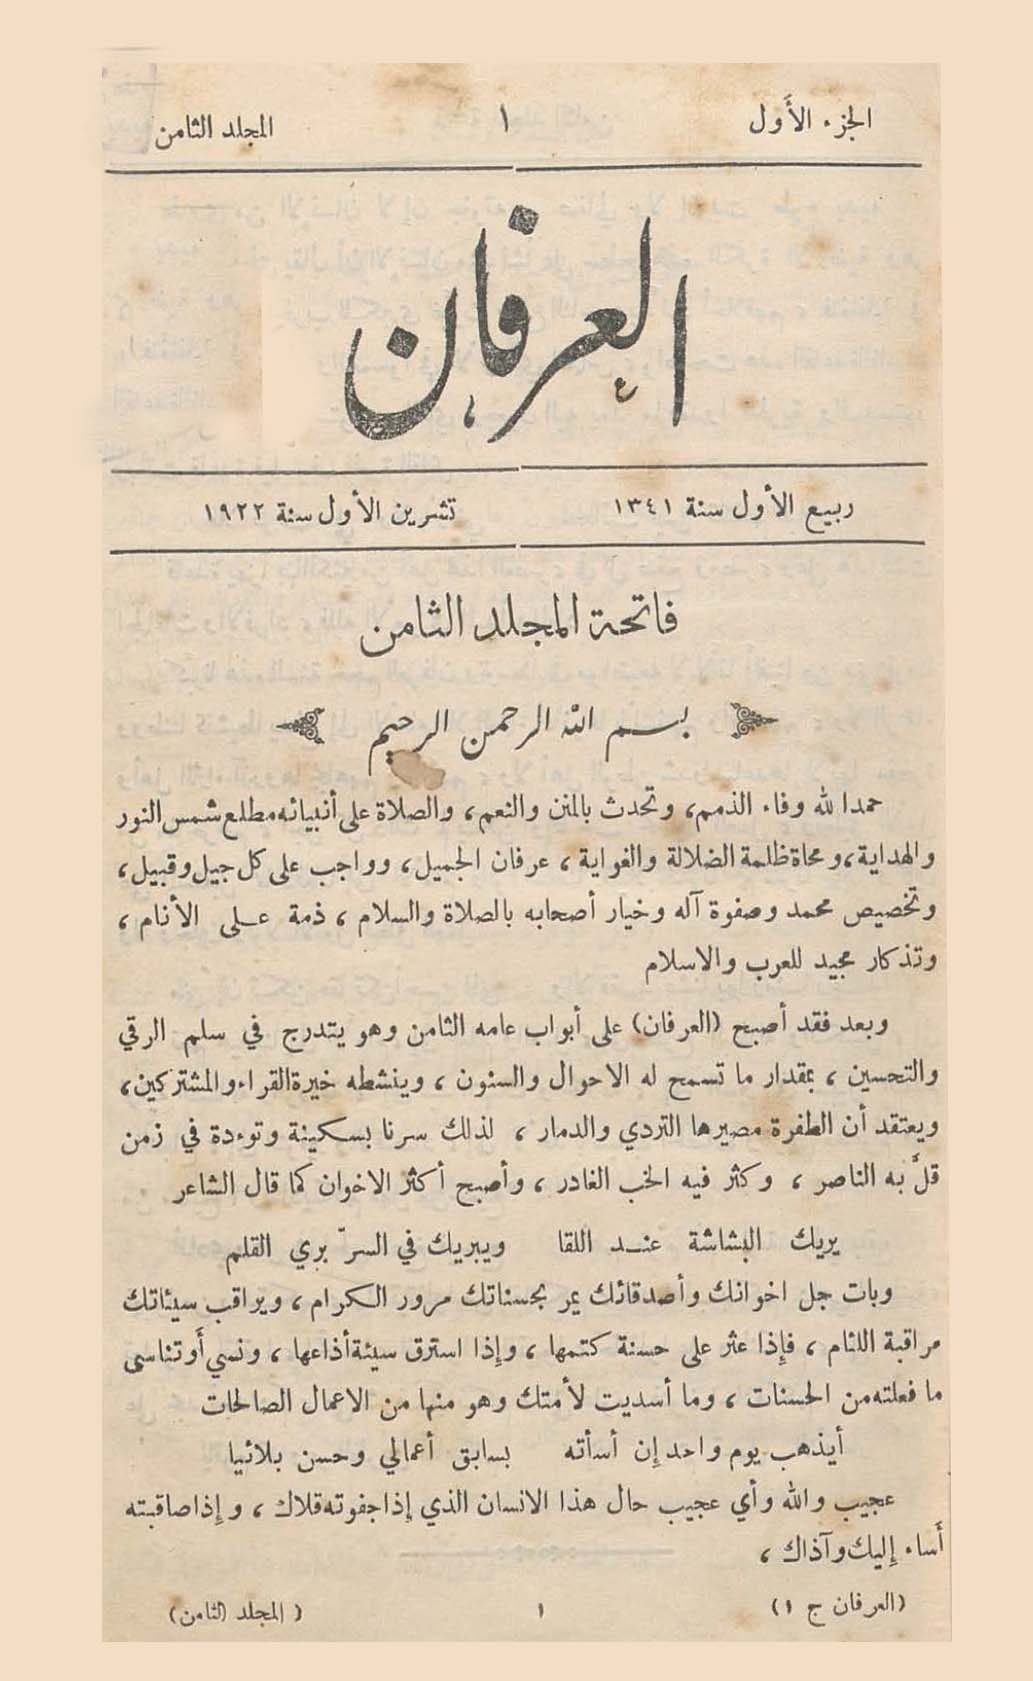 الجزء الأَول ١ المجلد الثامن
العرفان
ربيع الأول سنة ١٣٤١ تشرين الأول سنة ١٩٢٢
فاتحة المجلد الثامن
بسم الله الرحمن الرحيم
حمدا لله وفاء الذمم، وتحدث بالمنن والنعم، والصلاة على أنبيائه مطلع شمس النور
والهداية، ومحاة ظلمة الضلالة والغواية، عرفان الجميل، وواجب على كل جيل وقبيل،
وتخصيص محمد وصفوة آله وخيار أصحابه بالصلاة والسلام، ذمة على الأنام،
وتذكار مجيد للعرب والاسلام
وبعد فقد أصبح (العرفان) على أبواب عامه الثامن وهو يتدرج في سلم الرقي
والتحسين، بمقدار ما تسمح له الاحوال والسنون، وينشطه خيرة القراء والمشتركين،
ويعتقد أن الطفرة مصيرها التردي والدمار، لذلك سرنا بسكينة وتوءدة في زمن
قلَّ به الناصر، وكثر فيه الخب الغادر، وأصبح أكثر الاخوان كما قال الشاعر
يريك البشاشة عند اللقا ويبريك في السرّ بري القلم
وبات جل اخوانك وأصدقائك يمر بحسناتك مرور الكرام، ويراقب سيئاتك
مراقبة اللئام، فإذا عثر على حسنة كتمها، وإذا استرق سيئة أذاعها، ونسي أَو تناسى
ما فعلته من الحسنات، وما أسديت لأمتك وهو منها من الاعمال الصالحات
أيذهب يوم واحد إن أسأته بسابق أعمالي وحسن بلائيا
عجيب والله وأي عجيب حال هذا الانسان الذي إذا جفوته قلاك، وإذا صاقبته
أَساء إليك وآذاك،
(العرفان ج ١) ١ (المجلد الثامن)